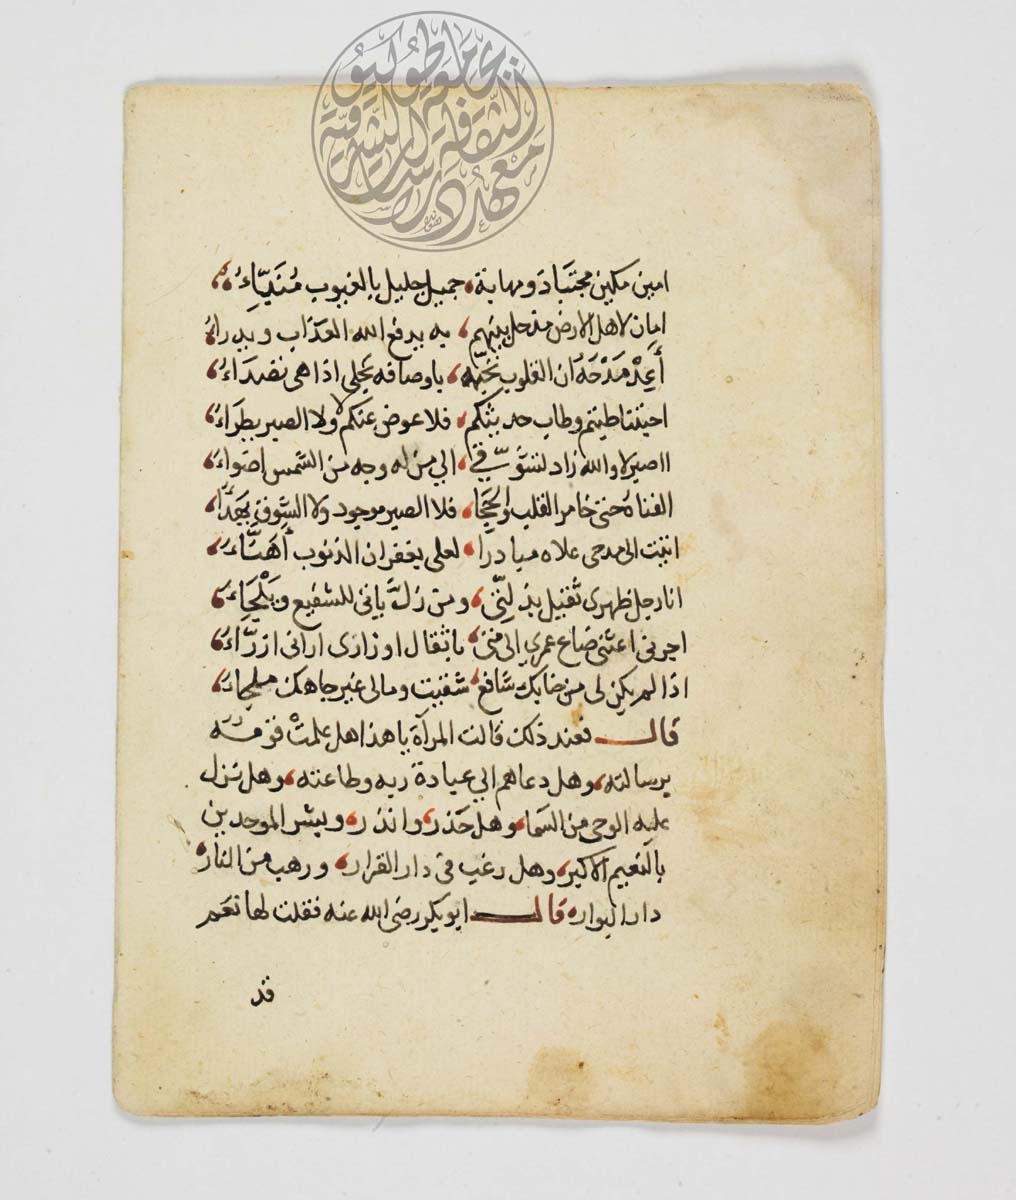 جامعة طوكيو
معهد دراسات الثقافة الشرقية
امين مكين مجتباد ومهابة، جميل جليل بالغيوب منبّاءُ،
امان لاهل الارض مذ حل بينهم، به يدفع الله العذاب ويدراءُ
أَعِدْ مَدْحَهُ ان القلوب تحبّه، باوصافه تجلى اذا هى تصداءُ،
احبتنا طبتم وطاب حديثكم، فلا عوض عنكم ولا الصبر يطراءُ،
ااصبر لا والله زاد تشوّقي، الي من له وجه من الشمس اضواءُ،
الفناه حتى خامر القلب والحجا، فلا الصبر موجود ولا الشوق يهداءُ
اتيت الى مدحى علاه مبادرا، لعلى بغفران الذنوب أهنّاءُ،
انا رجل ظهرى ثقيل بذلتى، ومن زلّ ياتى للشفيع ويلجاءُ،
اجرنى اغثنى ضاع عمري الى متى، باثقال اوزارى ارانى ارزّاءُ،
اذا لم يكن لى من جنابك شافع، شقيت ومالى غير جاهك ملجاءُ،
قال فعند ذلك قالت المرآة يا هذا هل علمت قومه
برسالته، وهل دعاهم الي عبادة ربه وطاعته، وهل نزل
عليه الوحى من السما، وهل حذر، وانذر، وبشر الموحدين
بالنعيم الاكبر، وهل رغب فى دار القرار، ورهب من النار،
دار البوار، قال ابو بكر رضى الله عنه فقلت لها نعم
قد